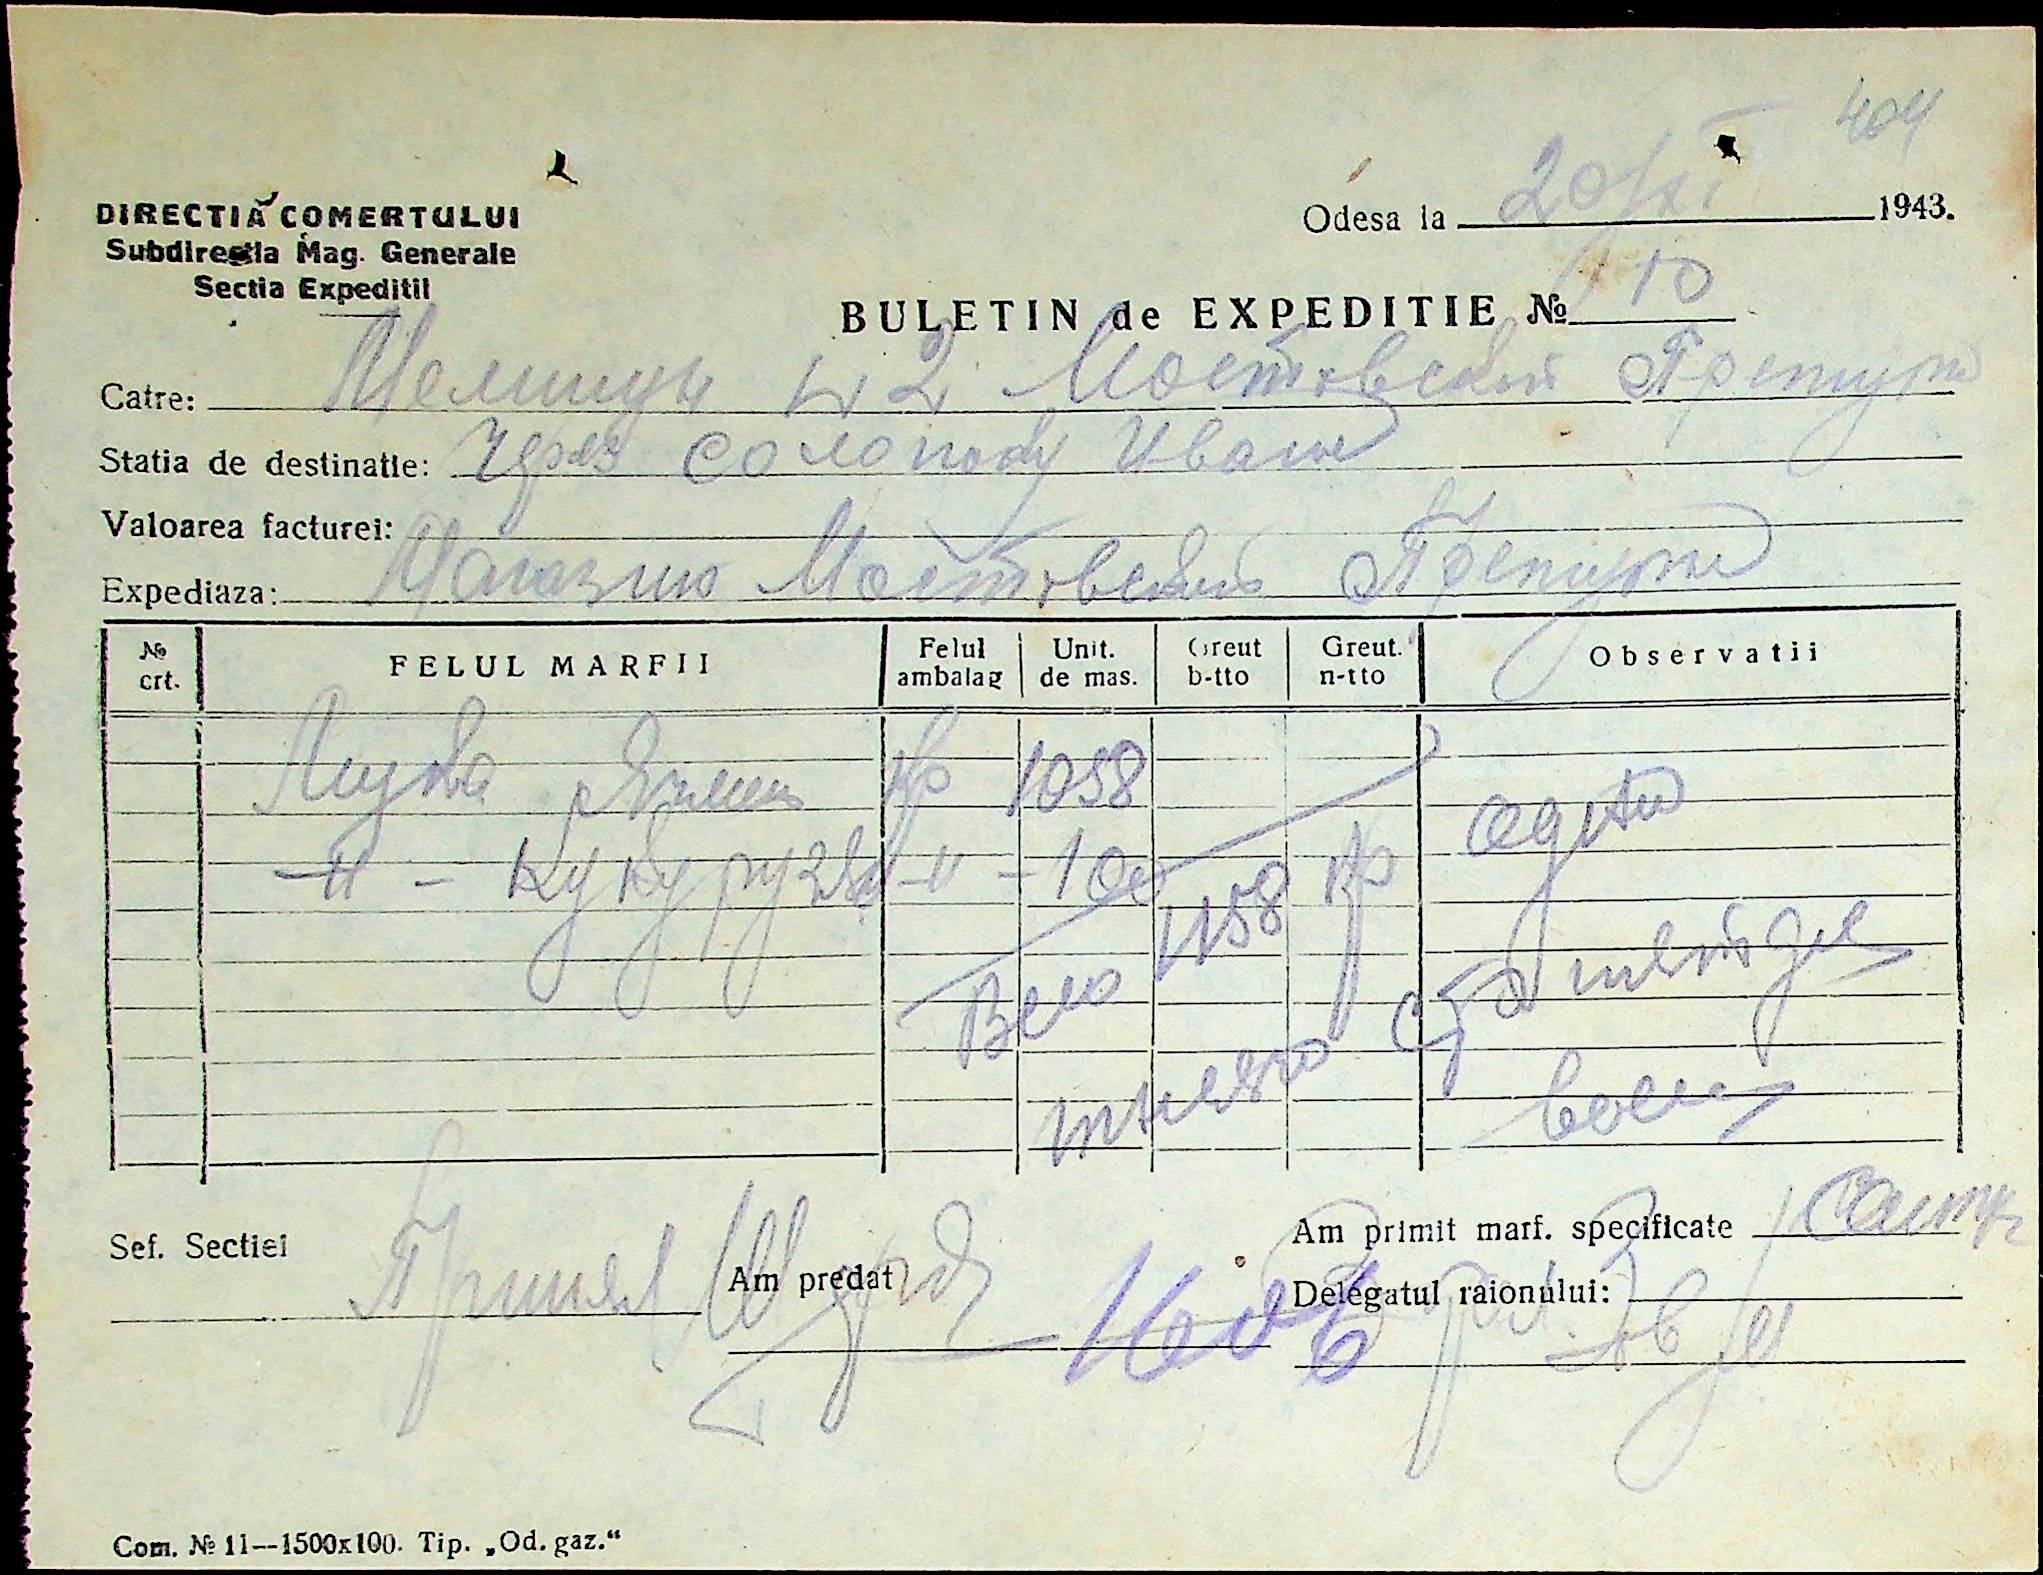 404
DIRECTIĂ COMERTULUI
Subdirectia Mag. Generale
Sectia Expeditii
Odesa la 20/XI 1943.
BULETIN de EXPEDITIE № 10
Catre: Мелници № 2 Мостовской Претуры
Statia de destinatie: Через Солопову Ивана
Valoarea facturei:
Expediaza: Магазин Мостовской Претуры
№ crt. FELUL MARFII Felul ambalag Unit. de mas. Greut b-tto Greut. n-tto Observatii
Мука Ячмен кг 1058
-"- Кукурузы -"- 100
Всего 1158 кг одна
тысяча сто пятьдесят
восем
Sef. Sectiei Принял
Am predat
Am primit marf. specificate
Delegatul raionului:
Com. № 11—1500x100. Tip. „Od. gaz.“